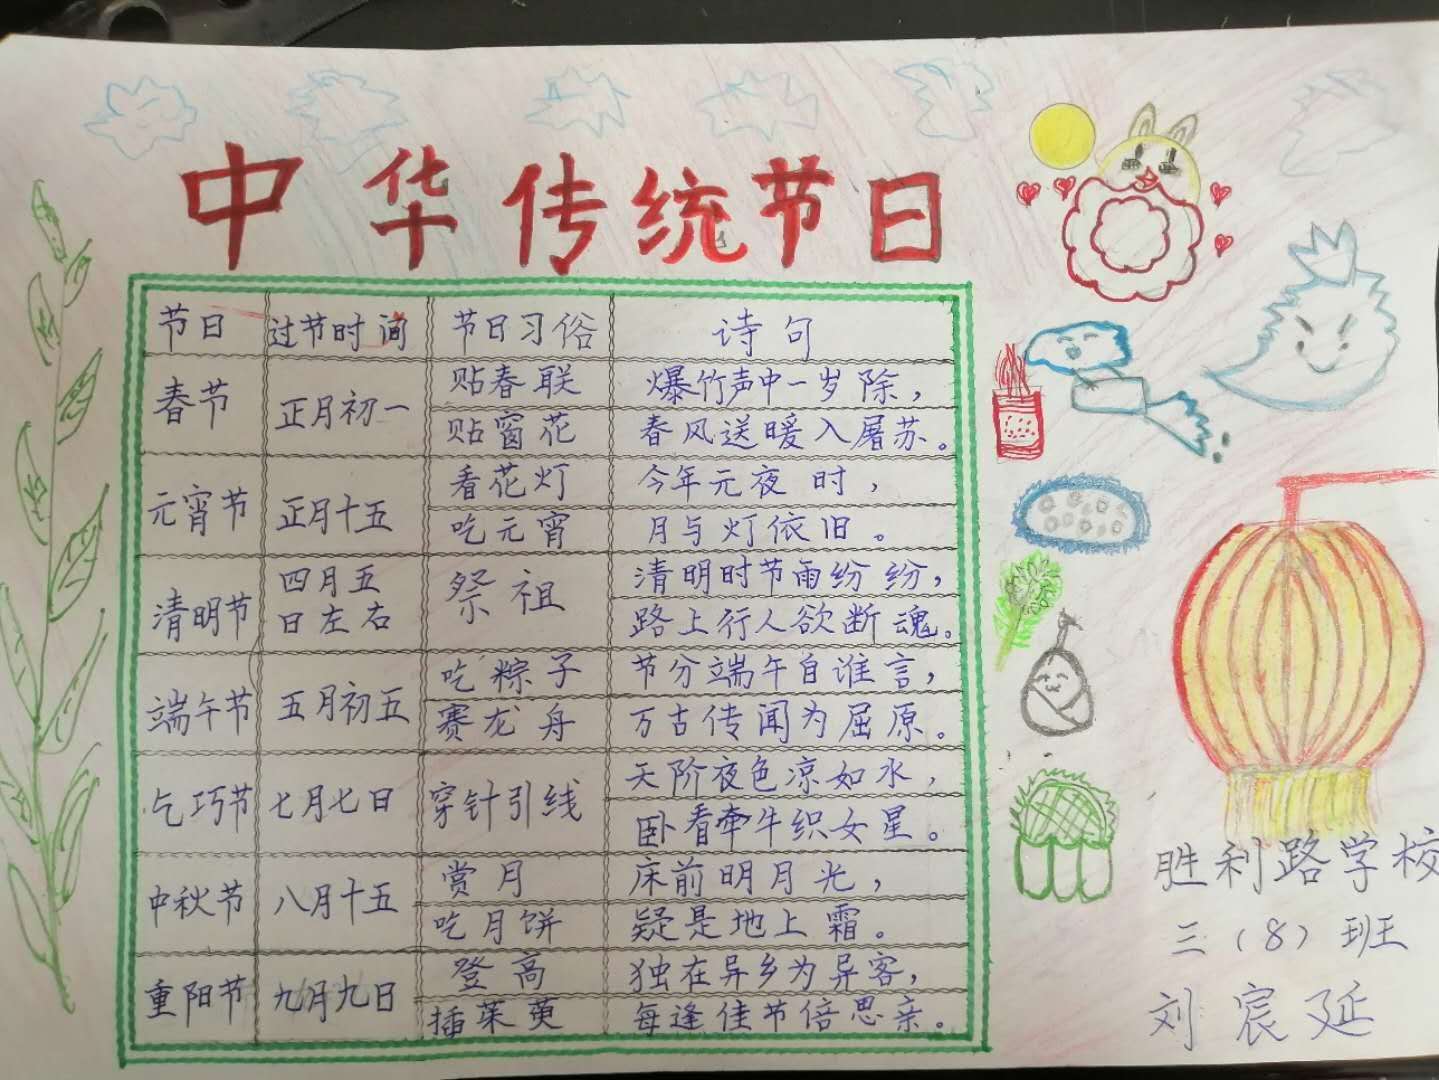 中华传统节日
节日 过节时间 节日习俗 诗句
春节 正月初一 贴春联 爆竹声中一岁除，
贴窗花 春风送暖入屠苏。
元宵节 正月十五 看花灯 今年元夜时，
吃元宵 月与灯依旧。
清明节 四月五日左右 祭祖 清明时节雨纷纷，
路上行人欲断魂。
端午节 五月初五 吃粽子 节分端午自谁言，
赛龙舟 万古传闻为屈原。
乞巧节 七月七日 穿针引线 天阶夜色凉如水，
卧看牵牛织女星。
中秋节 八月十五 赏月 床前明月光，
吃月饼 疑是地上霜。
重阳节 九月九日 登高 独在异乡为异客，
插茱萸 每逢佳节倍思亲。
胜利路学校
三（8）班
刘宸延